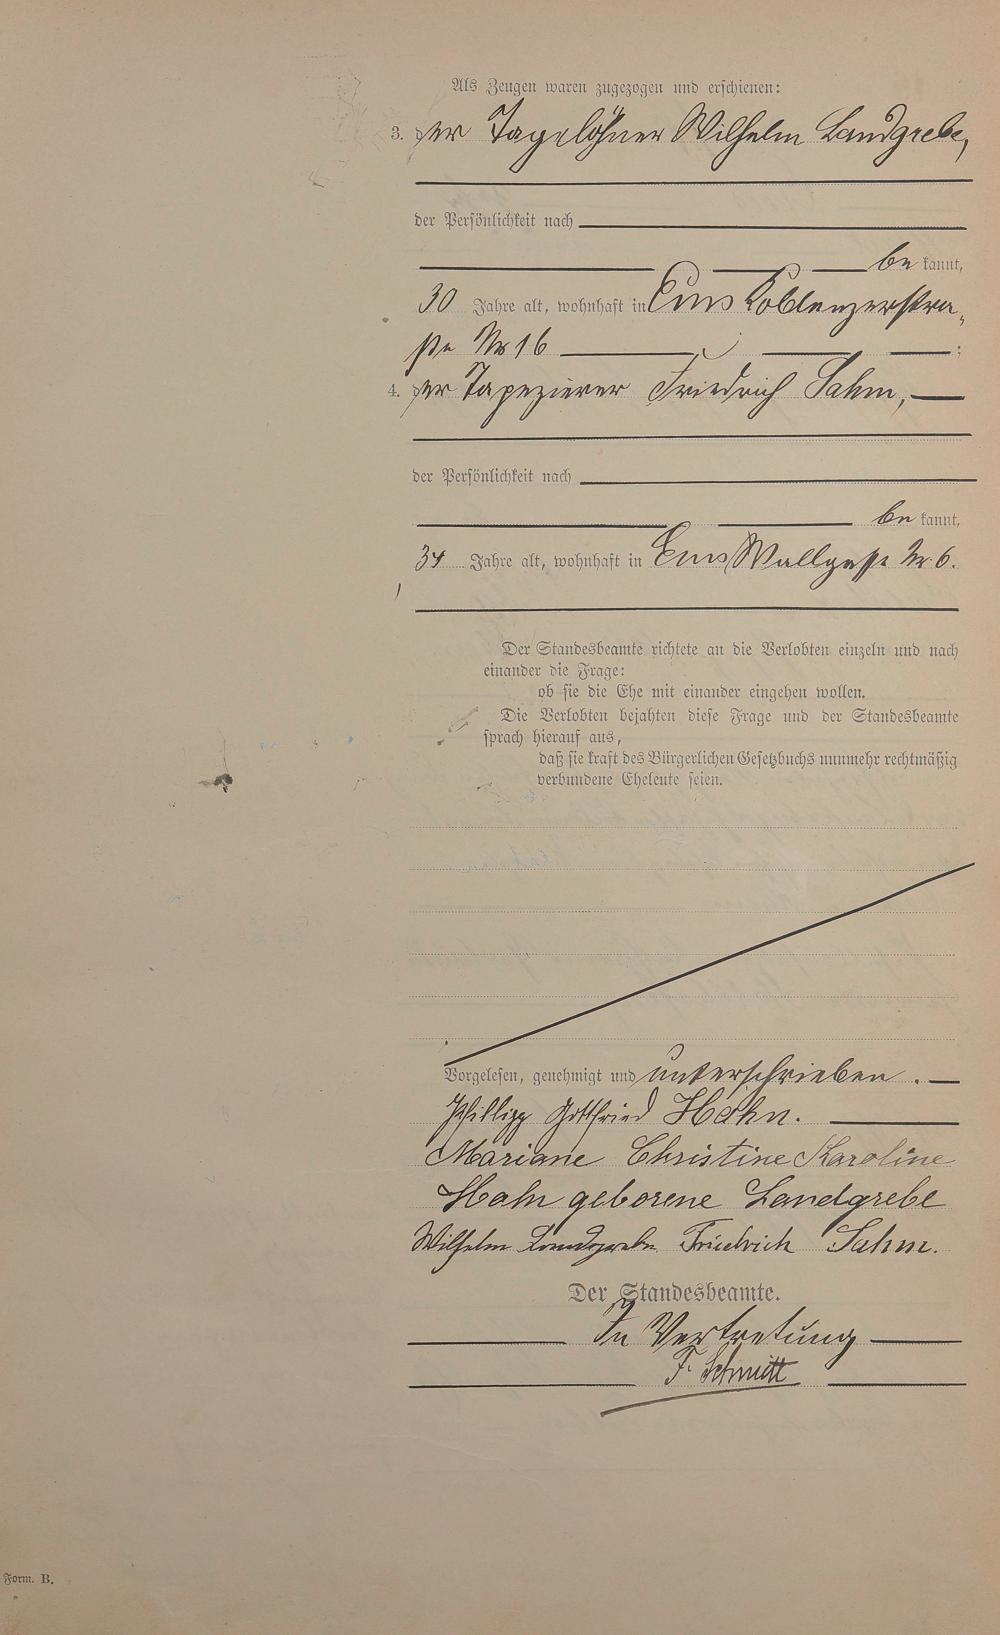 Als Zeugen waren zugezogen und erschienen:
3. der Tagelöhner Wilhelm Landgrebe,
der Persönlichkeit nach
be kannt,
30 Jahre alt, wohnhaft in Ems Koblenzerstra„
ße Nr 16 ;
4. der Tapezierer Friedrich Sahm,
der Persönlichkeit nach
be kannt,
34 Jahre alt, wohnhaft in Ems Wallgasse Nr 6.
Der Standesbeamte richtete an die Verlobten einzeln und nach
einander die Frage:
ob sie die Ehe mit einander eingehen wollen.
Die Verlobten bejahten diese Frage und der Standesbeamte
sprach hierauf aus,
daß sie kraft des Bürgerlichen Gesetzbuchs nunmehr rechtmäßig
verbundene Eheleute seien.
Vorgelesen, genehmigt und unterschrieben.
Philipp Gottfried Hahn.
Mariane Christine Karoline
Hahn geborene Landgrebe
Wilhelm Landgrebe Friedrich Sahm.
Der Standesbeamte.
In Vertretung
F. Schmitt
Form. B.